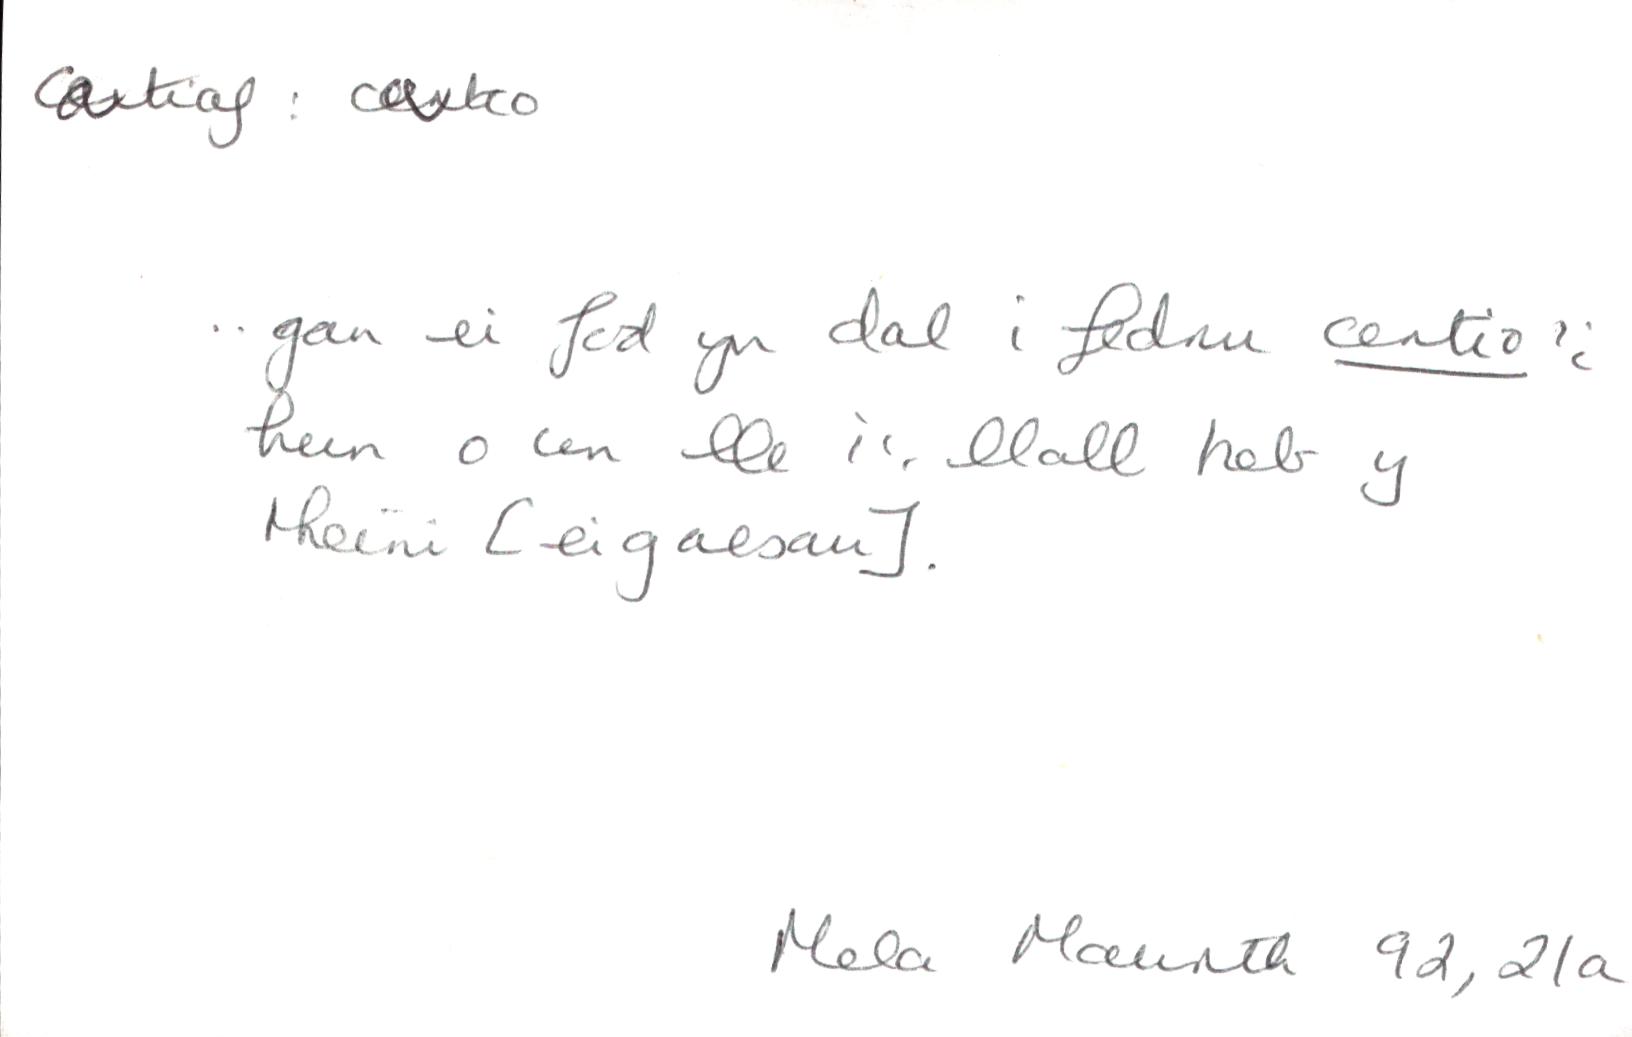 Cartiaf : cartio
.. gan ei fod yn dal i fedru certio 'i
hun o un lle i'r llall heb y
rheini [ei gaesau].
Mela Mawrth 92, 21a